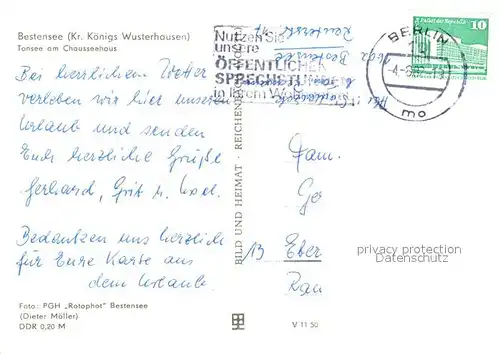 Bestensee (Kr. Königs Wusterhausen)
Tonsee am Chausseehaus
Bei herrlichem Wetter
verleben wir hier unseren
Urlaub und senden
Euch herzliche Grüße
Gerhard, Grit u. Axel.
Bedanken uns herzlich
für Eure Karte aus
dem Urlaub.
Foto: PGH „Rotophot" Bestensee
(Dieter Möller)
DDR 0,20 M
BILD UND HEIMAT · REICHENB
V 11 50
Nutzen Sie
unsere
ÖFFENTLICHEN
SPRECHSTUNDEN
in Ihrem
BERLIN
mo
10
Fam.
Ger
13 Eber
Rau
privacy protection
Datenschutz